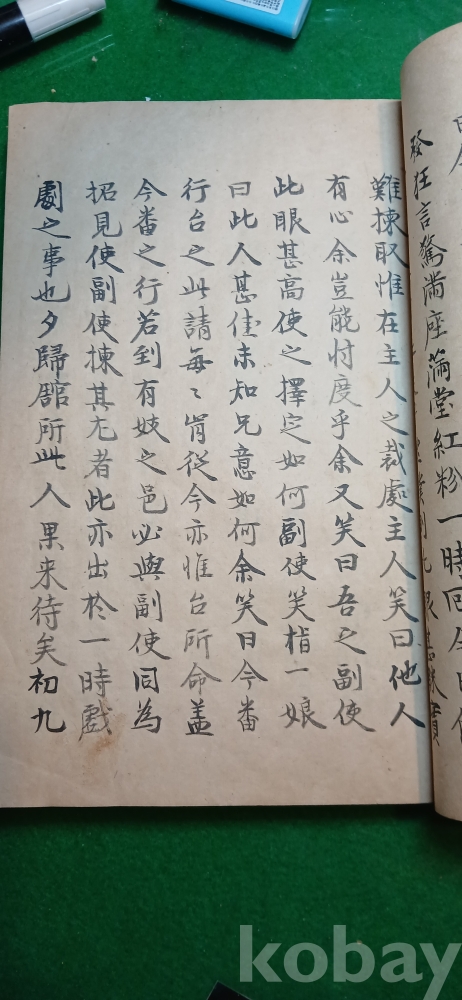 發狂言驚滿座滿堂紅粉一時回
難揀取惟在主人之裁處主人笑曰他人
有心余豈能忖度乎余又笑曰吾之副使
此眼甚高使之擇定如何副使笑指一娘
曰此人甚佳未知兄意如何余笑曰今番
行台之此請每〻肯從今亦惟台所命盖
今番之行若到有妓之邑必與副使同為
招見使副使揀其尤者此亦出於一時戲
劇之事也夕歸館所此人果来待矣初九
kobay